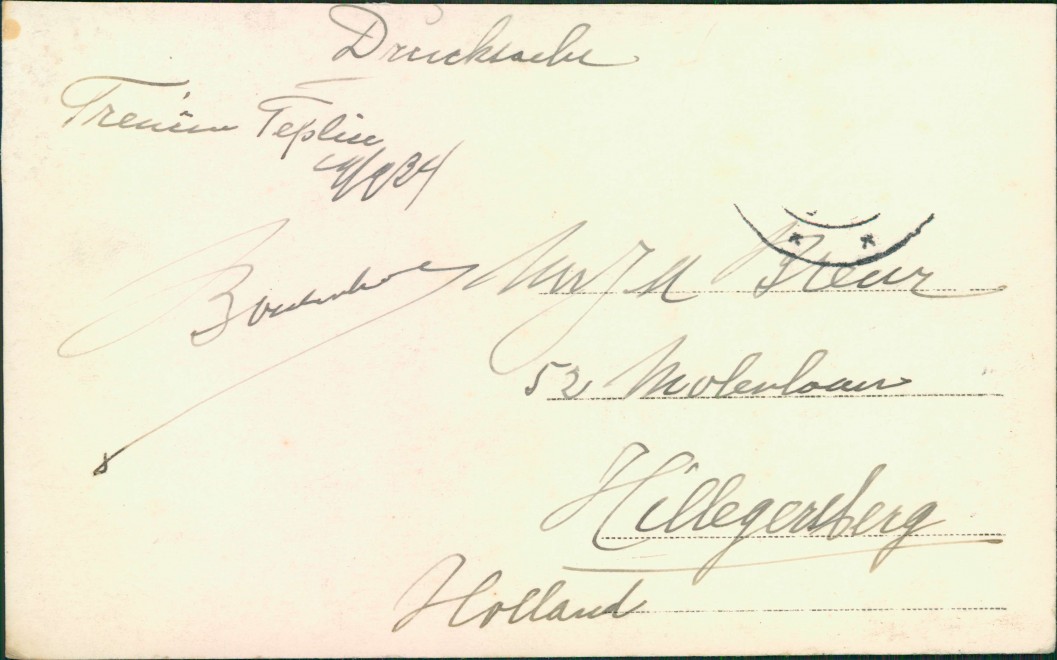 Drucksache
Trencin Teplice
9/34
J M Breur
52 Molenlaan
Hillegersberg
Holland